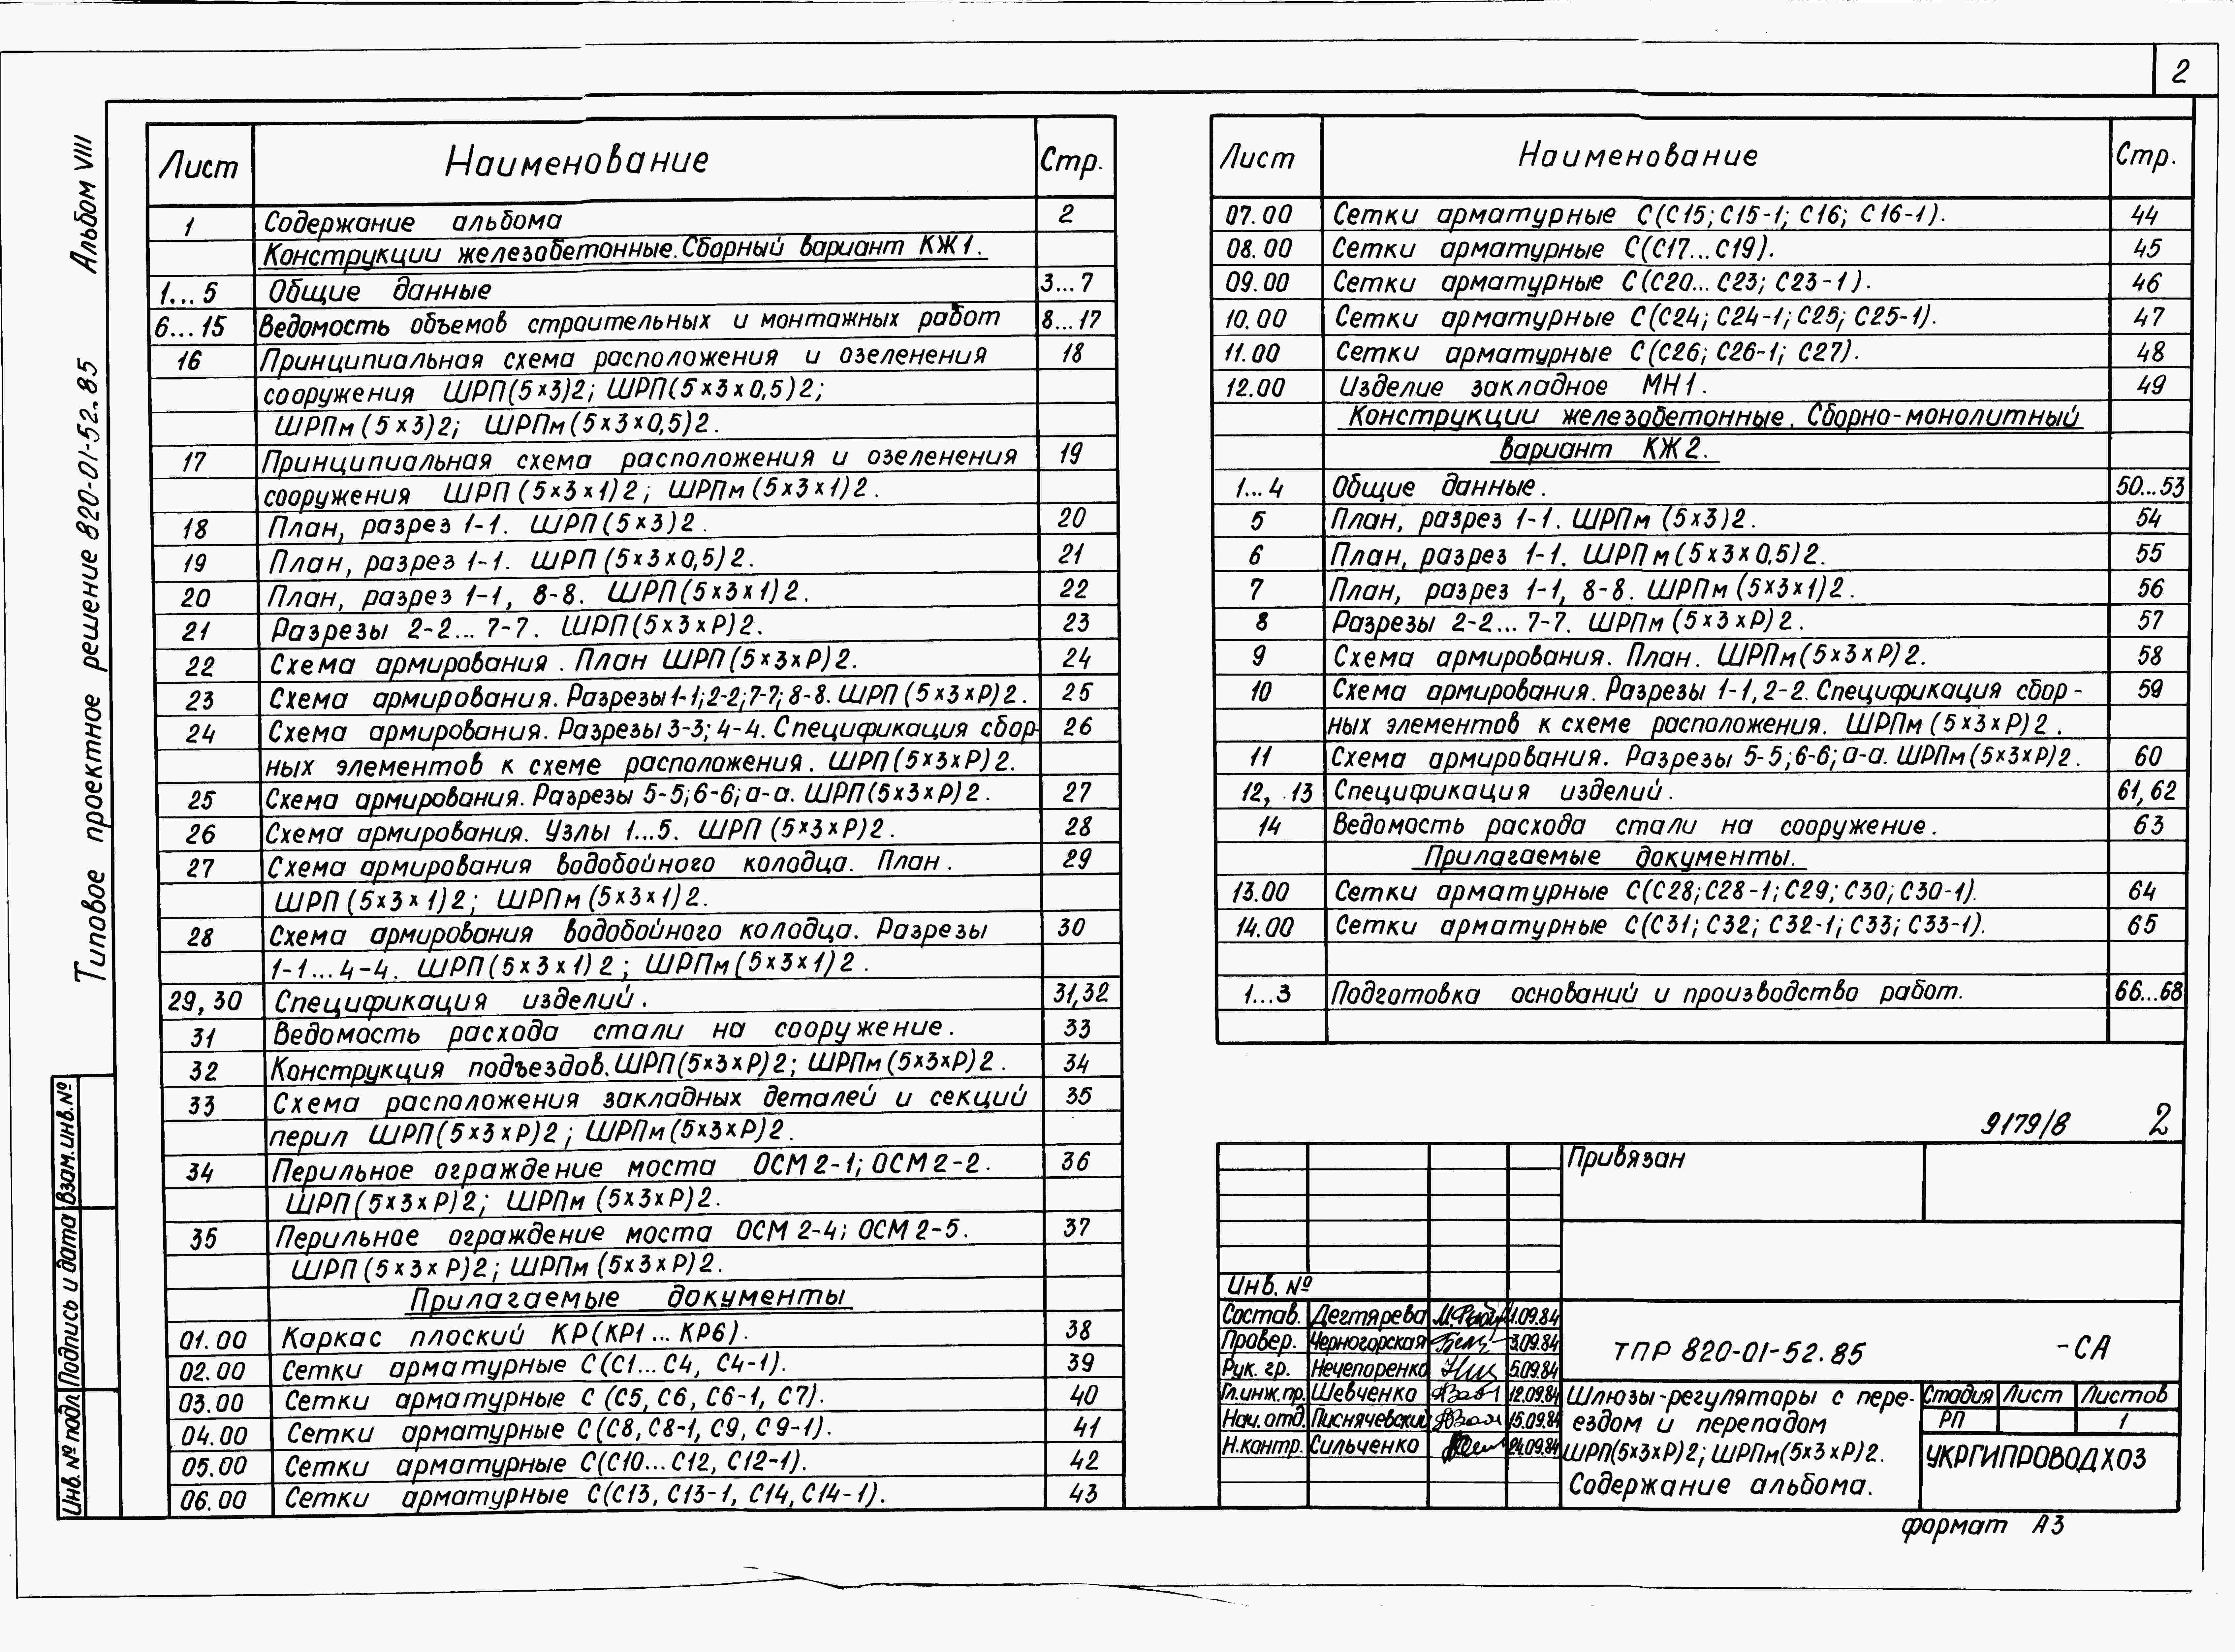 2
Типовое проектное решение 820-01-52.85 Альбом VIII
Лист Наименование Стр.
1 Содержание альбома 2
Конструкции железобетонные. Сборный вариант КЖ1.
1...5 Общие данные 3...7
6...15 Ведомость объемов строительных и монтажных работ 8...17
16 Принципиальная схема расположения и озеленения 18
сооружения ШРП(5×3)2; ШРП(5×3×0,5)2;
ШРПм(5×3)2; ШРПм(5×3×0,5)2.
17 Принципиальная схема расположения и озеленения 19
сооружения ШРП(5×3×1)2; ШРПм(5×3×1)2.
18 План, разрез 1-1. ШРП(5×3)2. 20
19 План, разрез 1-1. ШРП(5×3×0,5)2. 21
20 План, разрез 1-1, 8-8. ШРП(5×3×1)2. 22
21 Разрезы 2-2...7-7. ШРП(5×3×Р)2. 23
22 Схема армирования. План ШРП(5×3×Р)2. 24
23 Схема армирования. Разрезы 1-1; 2-2; 7-7; 8-8. ШРП(5×3×Р)2. 25
24 Схема армирования. Разрезы 3-3; 4-4. Спецификация сбор- 26
ных элементов к схеме расположения. ШРП(5×3×Р)2.
25 Схема армирования. Разрезы 5-5; 6-6; а-а. ШРП(5×3×Р)2. 27
26 Схема армирования. Узлы 1...5. ШРП(5×3×Р)2. 28
27 Схема армирования водобойного колодца. План. 29
ШРП(5×3×1)2; ШРПм(5×3×1)2.
28 Схема армирования водобойного колодца. Разрезы 30
1-1...4-4. ШРП(5×3×1)2; ШРПм(5×3×1)2.
29, 30 Спецификация изделий. 31,32
31 Ведомость расхода стали на сооружение. 33
32 Конструкция подъездов. ШРП(5×3×Р)2; ШРПм(5×3×Р)2. 34
33 Схема расположения закладных деталей и секций 35
перил ШРП(5×3×Р)2; ШРПм(5×3×Р)2.
34 Перильное ограждение моста ОСМ 2-1; ОСМ 2-2. 36
ШРП(5×3×Р)2; ШРПм(5×3×Р)2.
35 Перильное ограждение моста ОСМ 2-4; ОСМ 2-5. 37
ШРП(5×3×Р)2; ШРПм(5×3×Р)2.
Прилагаемые документы
01.00 Каркас плоский КР(КР1...КР6). 38
02.00 Сетки арматурные С(С1...С4, С4-1). 39
03.00 Сетки арматурные С(С5, С6, С6-1, С7). 40
04.00 Сетки арматурные С(С8, С8-1, С9, С9-1). 41
05.00 Сетки арматурные С(С10...С12, С12-1). 42
06.00 Сетки арматурные С(С13, С13-1, С14, С14-1). 43
Лист Наименование Стр.
07.00 Сетки арматурные С(С15; С15-1; С16; С16-1). 44
08.00 Сетки арматурные С(С17...С19). 45
09.00 Сетки арматурные С(С20...С23; С23-1). 46
10.00 Сетки арматурные С(С24; С24-1; С25; С25-1). 47
11.00 Сетки арматурные С(С26; С26-1; С27). 48
12.00 Изделие закладное МН1. 49
Конструкции железобетонные. Сборно-монолитный
вариант КЖ2.
1...4 Общие данные. 50...53
5 План, разрез 1-1. ШРПм(5×3)2. 54
6 План, разрез 1-1. ШРПм(5×3×0,5)2. 55
7 План, разрез 1-1, 8-8. ШРПм(5×3×1)2. 56
8 Разрезы 2-2...7-7. ШРПм(5×3×Р)2. 57
9 Схема армирования. План. ШРПм(5×3×Р)2. 58
10 Схема армирования. Разрезы 1-1, 2-2. Спецификация сбор- 59
ных элементов к схеме расположения. ШРПм(5×3×Р)2.
11 Схема армирования. Разрезы 5-5; 6-6; а-а. ШРПм(5×3×Р)2. 60
12, 13 Спецификация изделий. 61,62
14 Ведомость расхода стали на сооружение. 63
Прилагаемые документы.
13.00 Сетки арматурные С(С28; С28-1; С29; С30; С30-1). 64
14.00 Сетки арматурные С(С31; С32; С32-1; С33; С33-1). 65
1...3 Подготовка оснований и производство работ. 66...68
9179/8 2
Привязан
Инв. №
Состав. Дегтярева 1.09.84
Провер. Черногорская 3.09.84
Рук. гр. Нечепоренко 5.09.84
Гл.инж.пр. Шевченко 12.09.84
Нач. отд. Писнячевский 15.09.84
Н.контр. Сильченко 24.09.84
ТПР 820-01-52.85 -СА
Шлюзы-регуляторы с пере-
ездом и перепадом
ШРП(5×3×Р)2; ШРПм(5×3×Р)2.
Содержание альбома.
Стадия Лист Листов
РП 1
УКРГИПРОВОДХОЗ
формат А3
Взам.инв.№
Подпись и дата
Инв.№ подл.